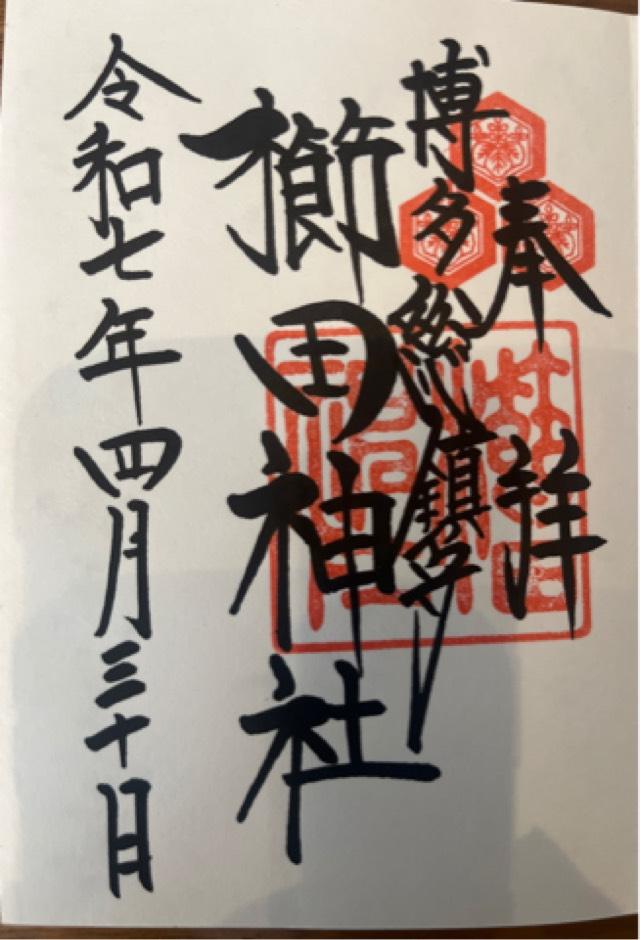 奉拝
博多総鎮守
櫛田神社
令和七年四月三十日
櫛田神社